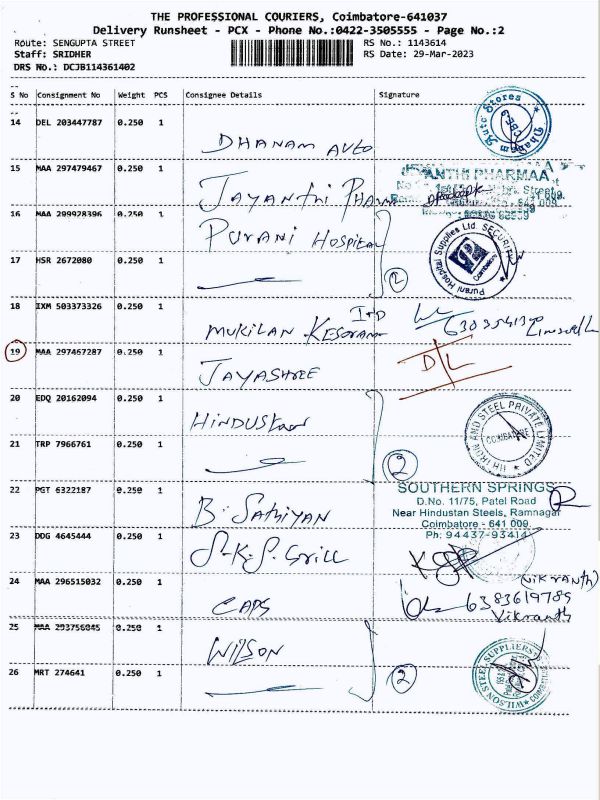 THE PROFESSIONAL COURIERS, Coimbatore-641037
Delivery Runsheet - PCX - Phone No.:0422-3505555 - Page No.:2
Route: SENGUPTA STREET RS No.: 1143614
Staff: SRIDHER RS Date: 29-Mar-2023
DRS No.: DCJB114361402
S No Consignment No Weight PCS Consignee Details Signature
14 DEL 203447787 0.250 1
DHANAM AUTO
Auto Stores
15 MAA 297479467 0.250 1
JAYANTHI PHARMA
JAYANTHI PHARMAA
16 MAA 299928396 0.250 1
PURANI HOSPITAL
Purani Hospital Supplies Ltd. SECURITY
Coimbatore
17 HSR 2672080 0.250 1
2
18 IXM 503373326 0.250 1
MUKILAN
19 MAA 297467287 0.250 1
JAYASHREE
D/L
20 EDQ 20162094 0.250 1
HINDUSTAN
IRON AND STEEL PRIVATE LIMITED
COIMBATORE
21 TRP 7966761 0.250 1
2
22 PGT 6322187 0.250 1
B. SATHIYAN
SOUTHERN SPRINGS
D.No. 11/75, Patel Road
Near Hindustan Steels, Ramnagar
Coimbatore - 641 009.
Ph: 94437-93414
23 DDG 4645444 0.250 1
S.K.S. GRILL
(VIKRANTH)
24 MAA 296515032 0.250 1
CAPS
6383619789
Vikranth
25 MAA 293756045 0.250 1
WILSON
WILSON STEEL SUPPLIERS
26 MRT 274641 0.250 1
2